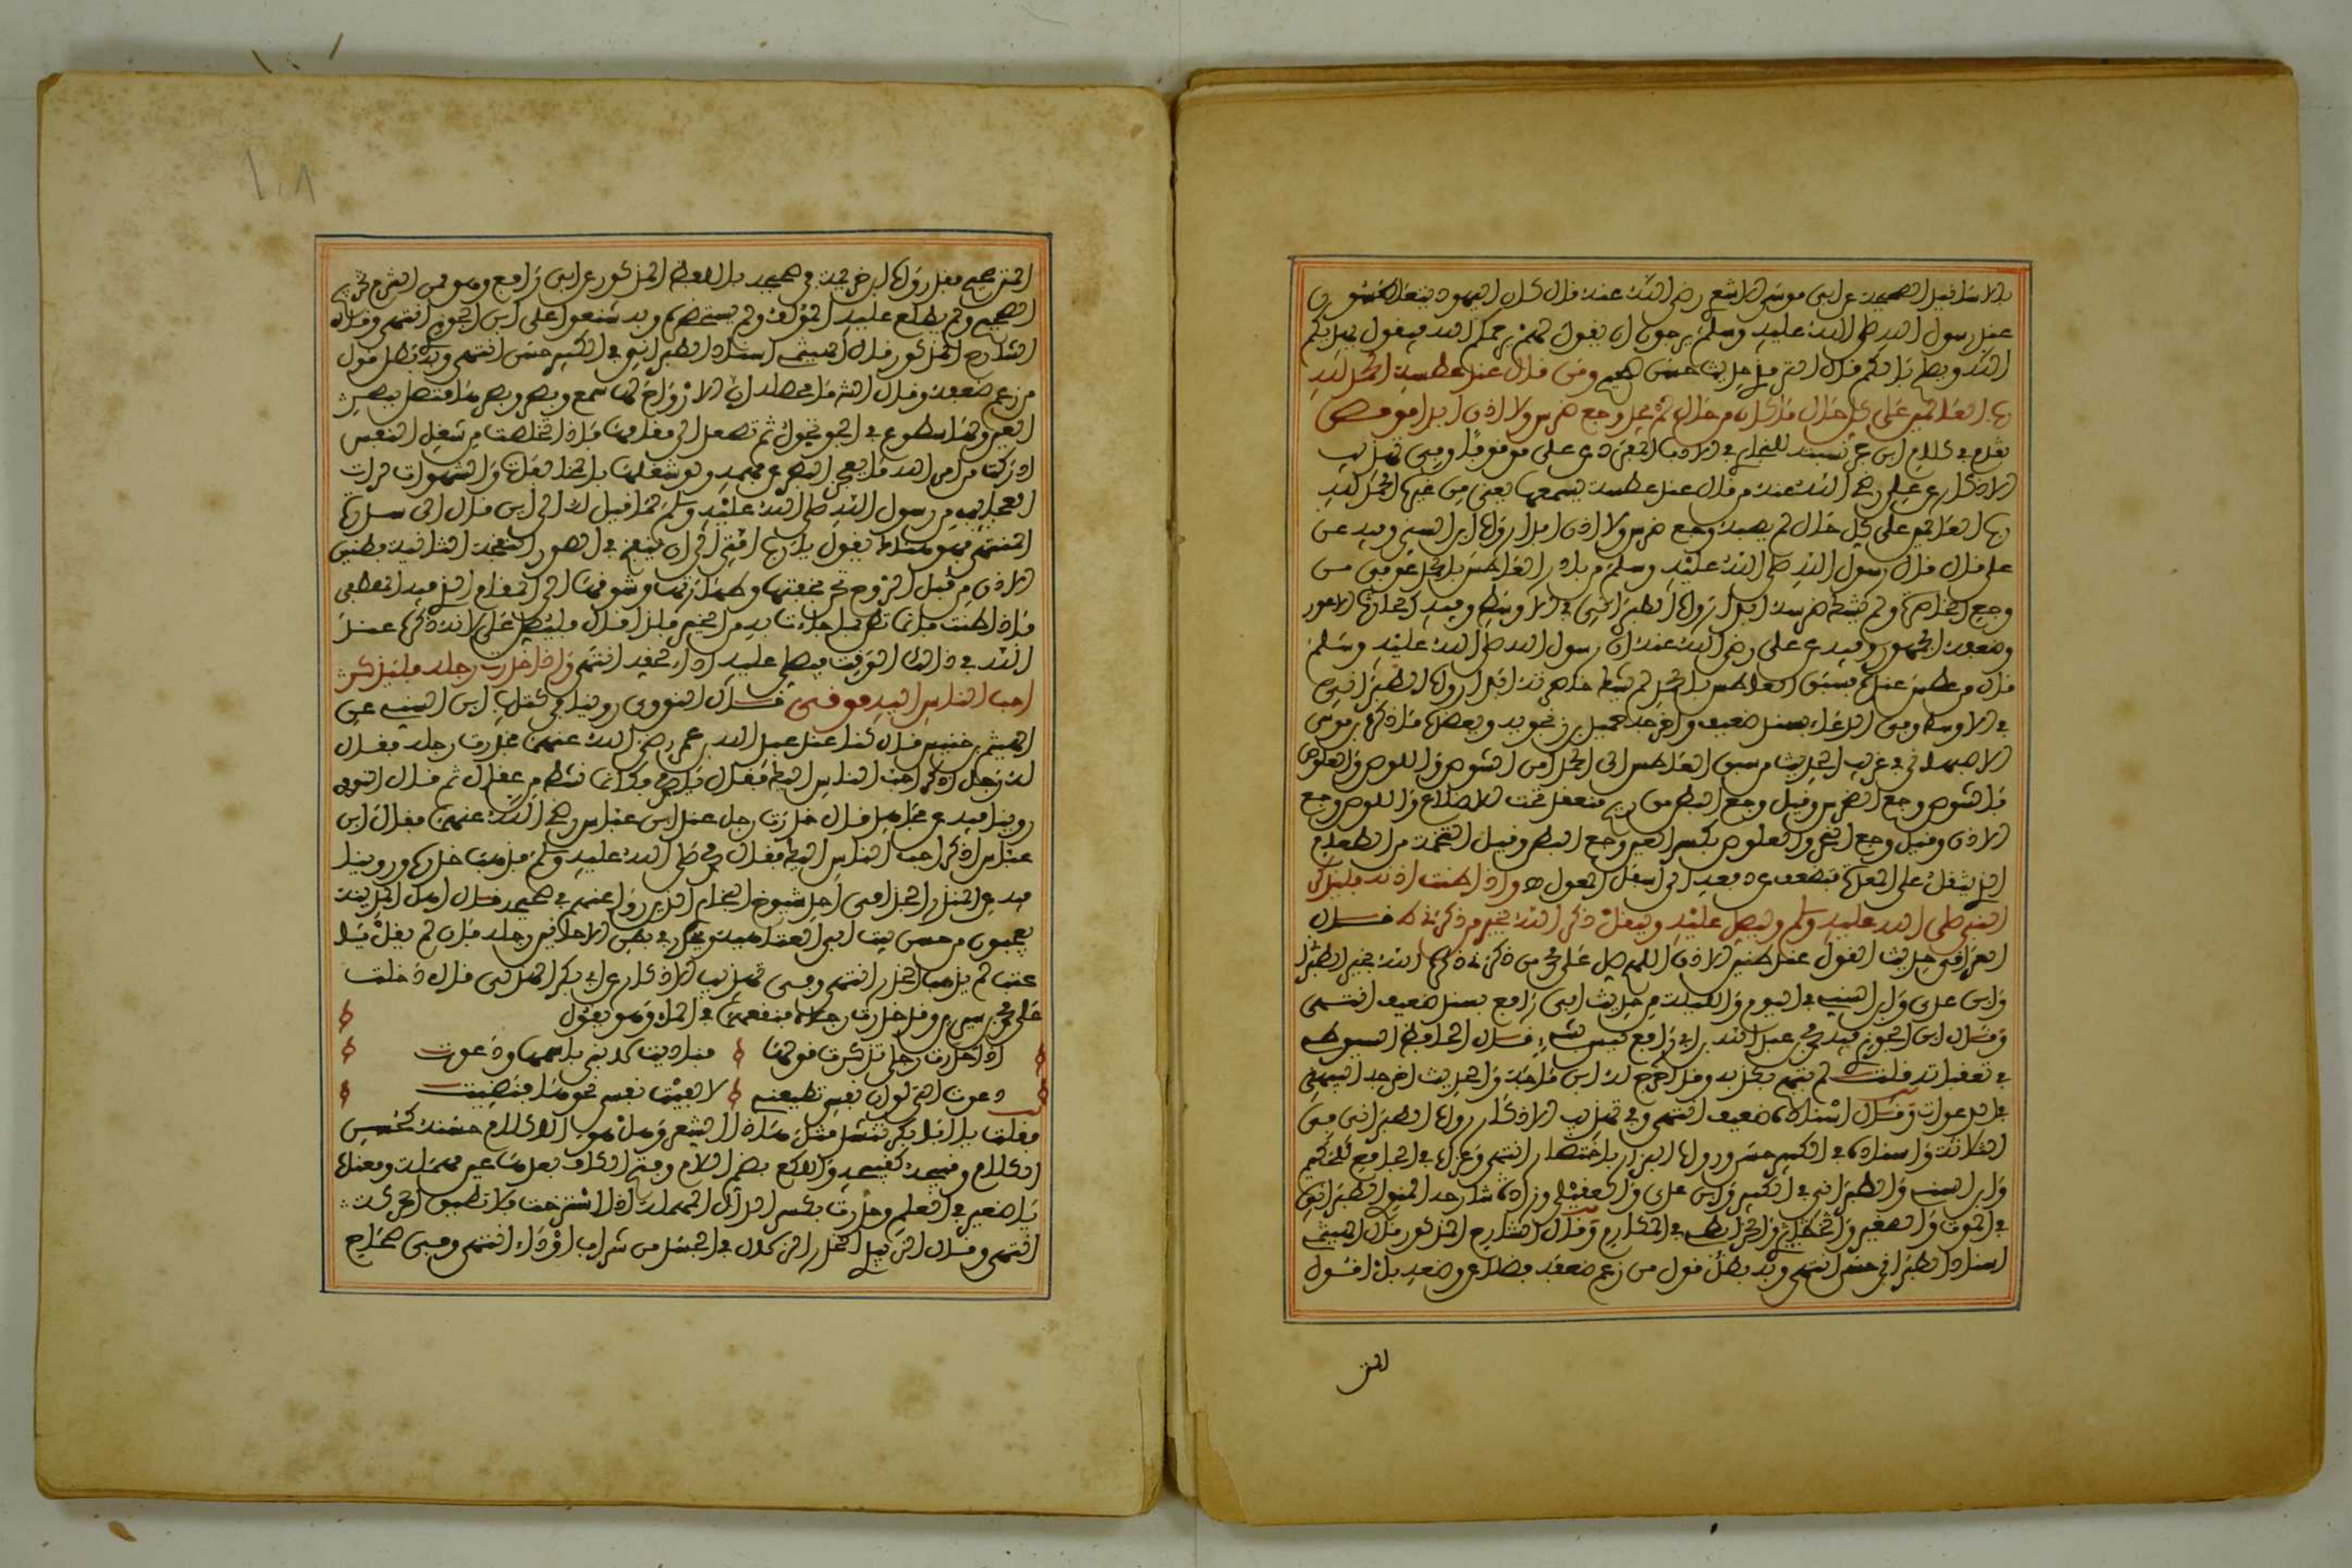 بالاسانيد الصحيحة عن ابى موسى الاشعرى رضى الله عنه قال كان اليهود يتعاطسون
عند رسول الله صلى الله عليه وسلم يرجون ان يقول لهم يرحمكم الله فيقول يهديكم
الله ويصلح بالكم قال الترمذى حديث حسن صحيح ومن قال عند عطسة الحمد لله
رب العالمين على كل حال ما كان من حال لم يجد وجع ضرس ولا اذن ابدا مو مص
تقدم فى كلام ابن حجر نسبته للبخارى فى الادب المفرد عن على موقوفا وفى تهذيب
الاذكار عن على رضى الله عنه من قال عند عطسة يسمعها يعنى من غيره الحمد لله
رب العالمين على كل حال لم يصبه وجع ضرس ولا اذن ابدا رواه ابن السنى وفيه عن
على قال قال رسول الله صلى الله عليه وسلم من بادر العاطس بالحمد عوفى من
وجع الخاصرة ولم يشتك ضرسه ابدا رواه الطبرانى فى الاوسط وفيه الحارث الاعور
وضعفه الجمهور وفيه عن على رضى الله عنه ان رسول الله صلى الله عليه وسلم
قال من عطس عنده فسبق العاطس بالحمد لم يشتك خاصرته ابدا رواه الطبرانى
فى الاوسط وفى الدعاء بسند ضعيف واخرجه تمام بنحوه ويعضده ما ذكره ابو موسى
الاصبهانى فى غريب الحديث من سبق العاطس الى الحمد امن الشوص واللوص والعلوص
فالشوص وجع الضرس وقيل وجع البطن من ريح تنعقد تحت الاضلاع واللوص وجع
الاذن وقيل وجع النحر والعلوص بكسر العين وجع البطن وقيل التخمة من الطعام
الذى يثقل على المعدة فيضعف عن دفعه الى اسفل واذا طنت اذنه فليذكر
النبى صلى الله عليه وسلم وليصل عليه وليقل ذكر الله بخير من ذكرنى ط قال
العراقى حديث القول عند طنين الاذن اللهم صل على محمد ذكر الله بخير من ذكرنى الطبرانى
وابن عدى وابن السنى فى اليوم والليلة من حديث ابى رافع بسند ضعيف انتهى
وقال ابن الجوزى فيه محمد بن عبيد الله بن ابى رافع ليس بشىء قال الحافظ السيوطى
فى تعقباته قلت لم يتهم بكذب وقد اخرج له ابن ماجه والحديث اخرجه البيهقى
فى الدعوات وقال اسناده ضعيف انتهى وفى تهذيب الاذكار رواه الطبرانى فى
الثلاثة واسناده فى الكبير حسن ورواه البزار باختصار انتهى وعزاه فى الجامع للحكيم
وابن السنى والطبرانى فى الكبير وابن عدى والعقيلى وزاد شارحه المناوى الطبرانى
فى الاوسط والصغير والخرائطى فى المكارم وقال الشارح المذكور قال الهيثمى
اسناد الطبرانى حسن انتهى وبه بطل قول من زعم ضعفه فضلا عن وضعه بل اقول
المتن
المتن صحيح فقد رواه ابن خزيمة فى صحيحه باللفظ المذكور عن ابى رافع وهو ممن التزم تخريج
الصحيح ولم يطلع عليه المؤلف ولم يستحضره وبه شنعوا على ابن الجوزى انتهى وقال
الشارح المذكور قال الهيثمى اسناد الطبرانى فى الكبير حسن انتهى وبه بطل قول
من زعم ضعفه وقال الشارح ان الارواح لها سمع وبصر وبصرها متصل ببصر
العين ولها سطوع فى الجو تجول ثم تصعد الى مقامها فاذا تخلصت من شغل النفس
ادركت من امر الله ما يعجز البصر عن فهمه ولو شغلها الشهوات لرات
العجائب من رسول الله صلى الله عليه وسلم لما قيل له الى اين قال الى سدرة
المنتهى فهو هناك يقول يا رب امتى الى ان ينفخ فى الصور النفخة الثانية فطنين
الاذن من قبل الروح تجد بخفتها وطهارتها وشوقها الى المقام الذى فيه المصطفى
فاذا طنت فانما جاءت به من الخير فلذا قال فليصل على لانه ذكره عند
الله فى ذلك الوقت فيصلى عليه اداء لحقه انتهى واذا خدرت رجله فليذكر
احب الناس اليه مو فى قال النووى روينا فى كتاب ابن السنى عن
الهيثم بن حنش قال كنا عند عبد الله بن عمر رضى الله عنهما فخدرت رجله فقال
له رجل اذكر احب الناس اليك فقال يا محمد فكانما نشط من عقال ثم قال النووى
روينا فيه عن مجاهد قال خدرت رجل عند ابن عباس رضى الله عنهما فقال ابن
عباس اذكر احب الناس اليك فقال محمد صلى الله عليه وسلم فذهب خدره وروينا
فيه عن المنذر الحزامى احد شيوخ البخارى الذين روى عنهم فى صحيحه قال اهل المدينة
يعجبون من حسن بيت ابى العتاهية ويخدر فى بعض الاحايين رجله فان لم يقل يا
عتب لم يذهب الخدر انتهى وفى تهذيب الاذكار عن ابى بكر الهذلى قال دخلت
على محمد بن سيرين وقد خدرت رجلاه فنقعهما فى الماء وهو يقول
اذا خدرت رجلى تذكرت قولها فناديت لبنى باسمها ودعوت
دعوت التى لو ان نفسى تطيعنى لالقيت نفسى نحوها فقضيت
فقلت يا ابا بكر تنشد مثل هذا الشعر وهل هو الا كلام حسنه كحسن
الكلام وقبيحه كقبيحه واللكع بضم اللام وفتح الكاف بعدها عين مهملة ومعناه
يا صغير فى العلم وخدرت بكسر الدال المهملة اذا استرخت فلا تطيق الحركة
انتهى وقال الزبيدى الخدر الكسل فى الجسد من شراب او دواء انتهى وفى صحاح